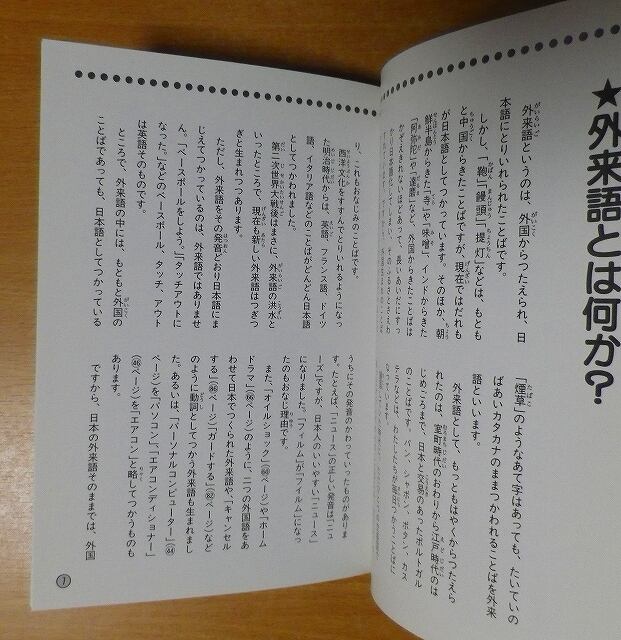 ★外来語とは何か?
外来語というのは、外国からつたえられ、日
本語にとりいれられたことばです。
しかし、「鞄」「饅頭」「提灯」などは、もとも
と中国からきたことばですが、現在ではだれも
が日本語としてつかっています。そのほか、朝
鮮半島からきた「寺」や「味噌」、インドからきた
「阿弥陀」や「達磨」など、外国からきたことばは
かぞえきれないほどあって、長いあいだにすっ
かり日本語化してしまい、
「煙草」のようなあて字はあっても、たいていの
ばあいカタカナのままつかわれることばを外来
語といいます。
外来語として、もっともはやくからつたえら
れたのは、室町時代のおわりから江戸時代のは
じめごろまで、日本と交易のあったポルトガル
のことばです。パン、シャボン、ボタン、カス
テラなどは、わたしたちが毎日つかうことばに
なっています。
り、これもおなじみのことばです。
西洋文化をすすんでとりいれるようになっ
た明治時代からは、英語、フランス語、ドイツ
語、イタリア語などのことばがどんどん日本語
としてつかわれました。
第二次世界大戦後はまさに、外来語の洪水と
いったところで、現在も新しい外来語はつぎつ
ぎと生まれつつあります。
ただし、外来語をその発音どおり日本語にま
じえてつかっているのは、外来語ではありませ
ん。「ベースボールをしよう。」「タッチアウトに
なった。」などのベースボール、タッチ、アウト
は英語そのものです。
ところで、外来語の中には、もともと外国の
ことばであっても、日本語としてつかっている
うちにその発音のかわっていったものがありま
す。たとえば、「ニュース」の正しい発音は「ニュ
ーズ」ですが、日本人のいいやすい「ニュース」
になりました。「フィルム」が「フイルム」になっ
たのもおなじ理由です。
また、「オイルショック」(60ページ)や「ホーム
ドラマ」(66ページ)のように、二つの外国語をあ
わせて日本でつくられた外来語や、「キャンセル
する」(86ページ)「ガードする」(82ページ)など
のように動詞としてつかう外来語も生まれまし
た。あるいは、「パーソナルコンピューター」(44
ページ)を「パソコン」、「エアコンディショナー」
(46ページ)を「エアコン」と略してつかうものも
あります。
ですから、日本の外来語そのままでは、外国
7